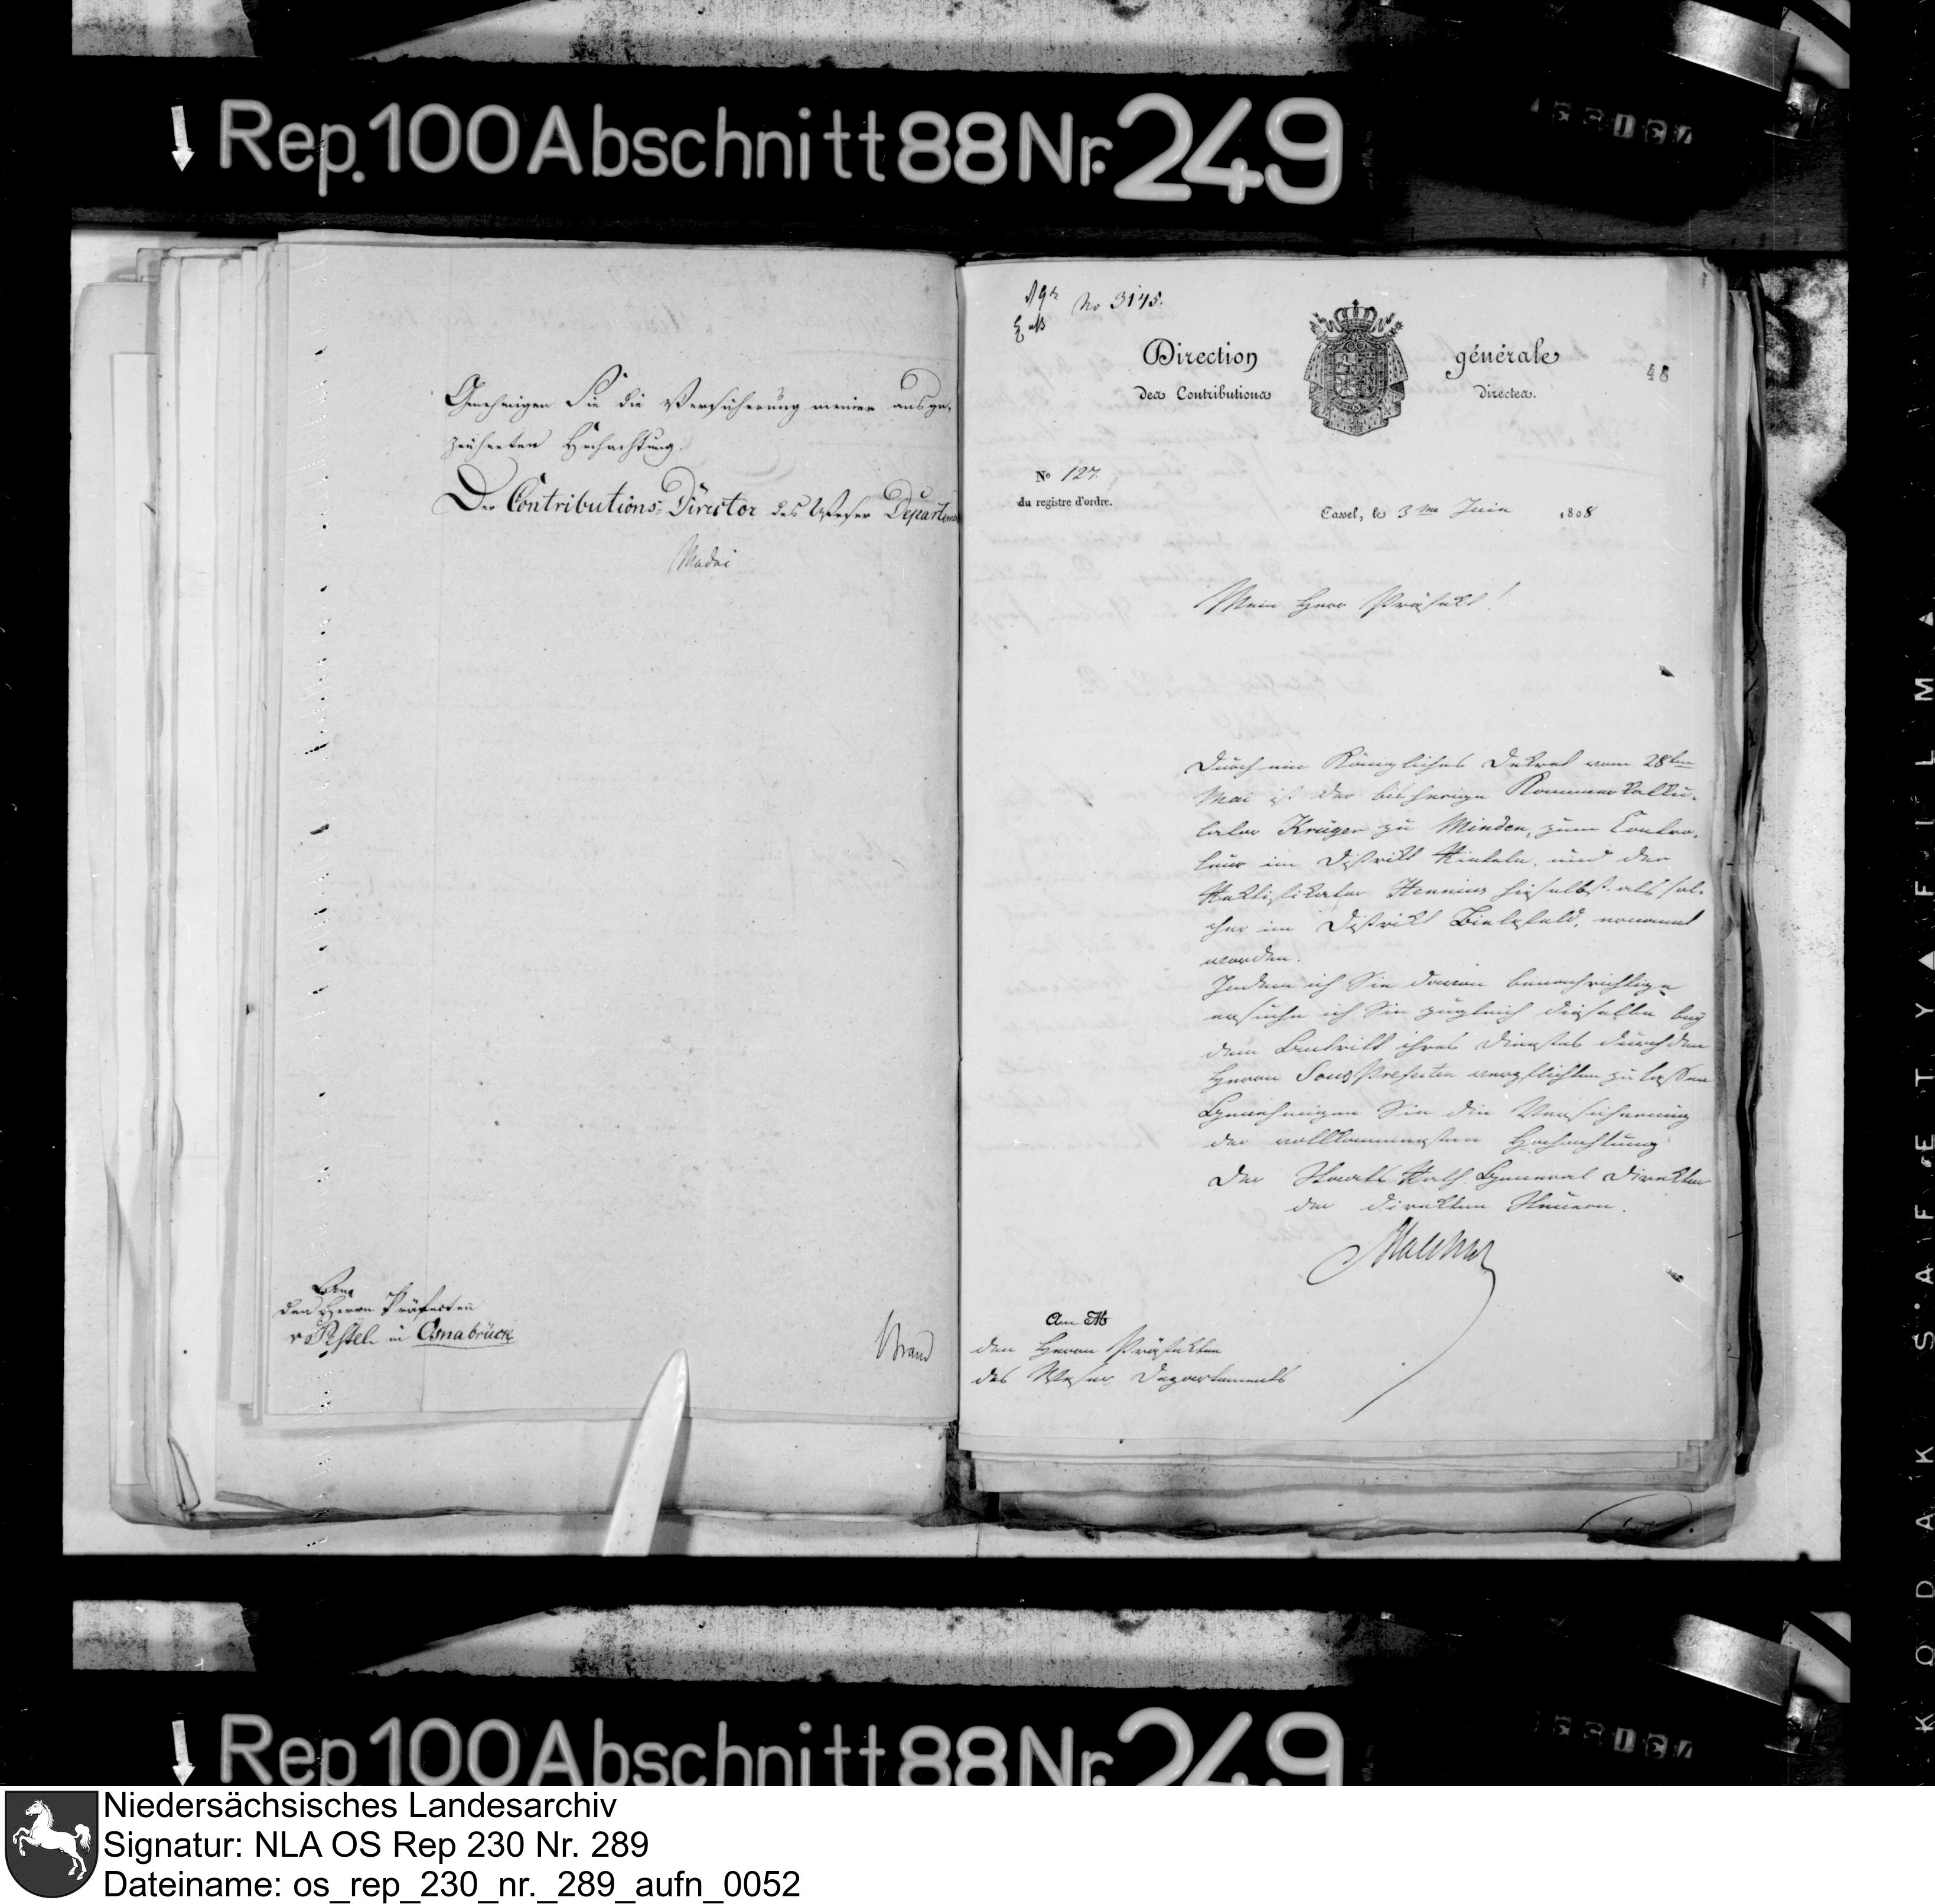 Rep. 100 Abschnitt 88 Nr. 249
Genehmigen Sie die Versicherung meiner ausge-
zeichneten Hochachtung.
Der Contributions-Director des Weser Departem
Madai
An
den Herrn Präfecten
v Pestel in Osnabrück
No 3145.
Direction générale
des Contributions directes.
48
No 127.
du registre d'ordre.
Cassel, le 3me Juin 1808
Mein Herr Präfekt!
Durch ein Königliches Dekret vom 28ten
Mai ist der bisherige Kammerkalku-
lator Krüger zu Minden, zum Contro-
leur im Distrikt Rinteln, und der
Rektifikator Henning hieselbst als sol-
cher im Distrikt Bielefeld, ernannt
worden.
Indem ich Sie davon benachrichtige
ersuche ich Sie zugleich dieselben bey
dem Antritt ihres Dienstes durch den
Herrn Sous Prefecten verpflichten zu lassen
Genehmigen Sie die Versicherung
der vollkommensten Hochachtung
Der Staats Rath General Direktor
der direkten Steuern.
Malchus
An
den Herrn Präfekten
des Weser Departements
Rep 100 Abschnitt 88 Nr. 249
KODAK SAFETY FILM
Niedersächsisches Landesarchiv
Signatur: NLA OS Rep 230 Nr. 289
Dateiname: os_rep_230_nr._289_aufn_0052